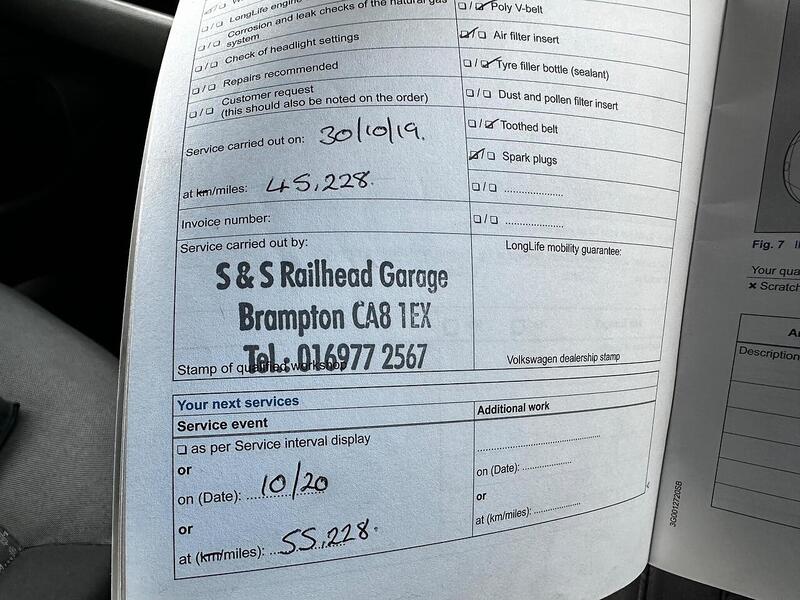 LongLife engine
Corrosion and leak checks of the natural gas
system
☐/☐ Check of headlight settings
☐/☐ Repairs recommended
☐/☐ Customer request
(this should also be noted on the order)
Service carried out on: 30/10/19.
at km/miles: 45,228.
Invoice number:
Service carried out by:
S & S Railhead Garage
Brampton CA8 1EX
Tel : 016977 2567
Stamp of qualified workshop
☐/☑ Poly V-belt
☑/☐ Air filter insert
☐/☑ Tyre filler bottle (sealant)
☐/☐ Dust and pollen filter insert
☐/☑ Toothed belt
☑/☐ Spark plugs
☐/☐ ....................
☐/☐ ....................
LongLife mobility guarantee:
Volkswagen dealership stamp
Your next services
Service event
☐ as per Service interval display
or
on (Date): 10/20
or
at (km/miles): 55,228.
Additional work
........................................
on (Date): ................
or
at (km/miles): ...............
3G0012720SB
Fig. 7
Your qua
× Scratch
Description